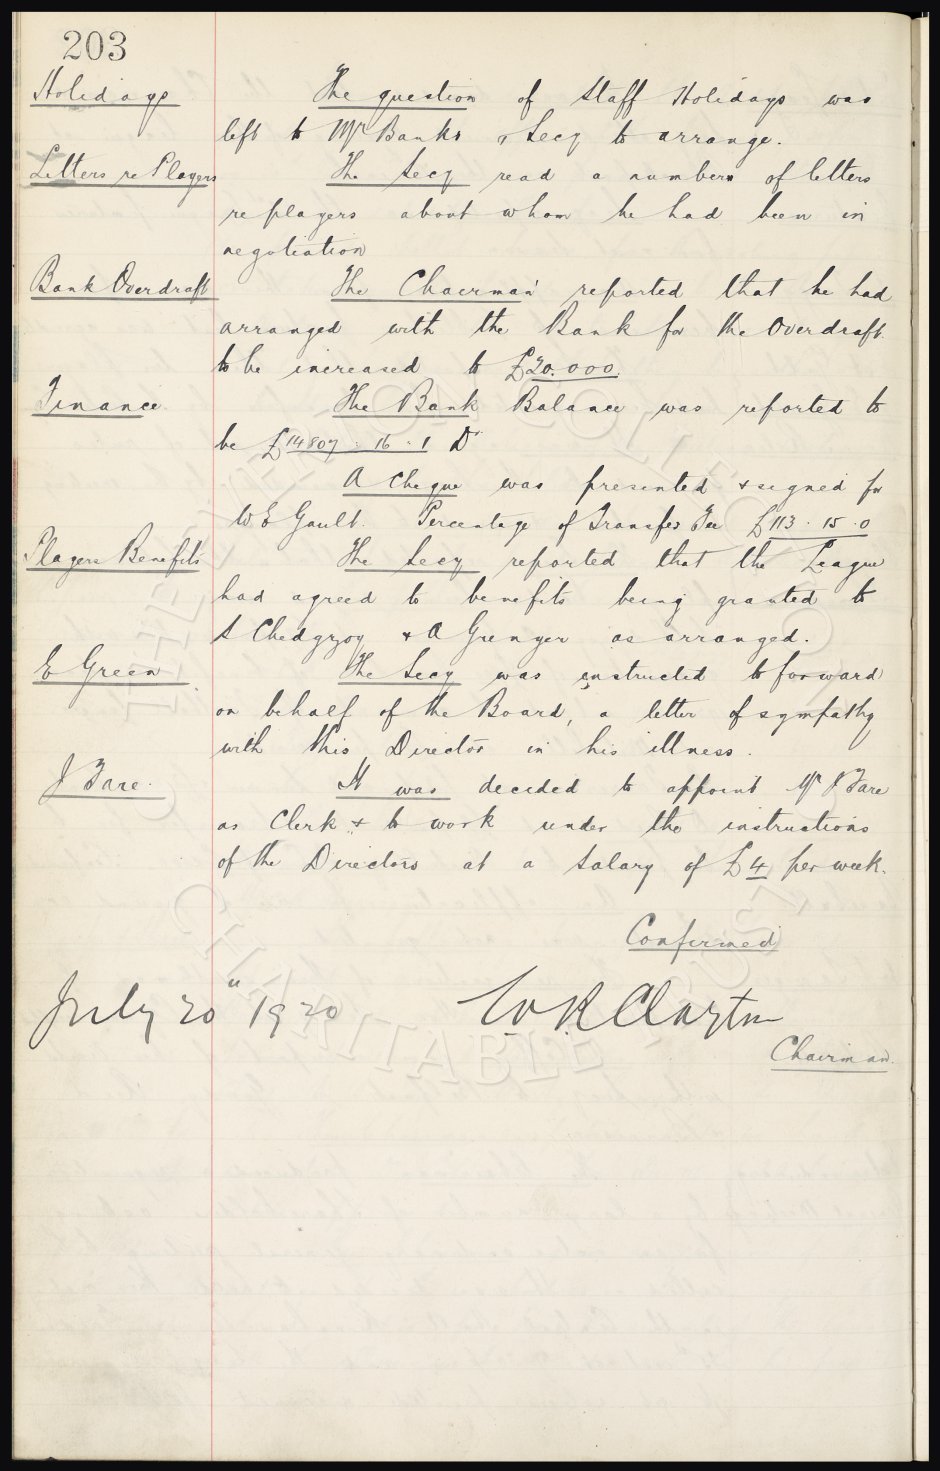 203
Holidays The question of Staff Holidays was
left to Mr Banks & Secy to arrange.
Letters re Players The Secy read a number of letters
re players about whom he had been in
negotiation
Bank Overdraft The Chairman reported that he had
arranged with the Bank for the Overdraft
to be increased to £20.000.
Finance The Bank Balance was reported to
be £14807 . 16 . 1 Dr
A Cheque was presented & signed for
W E Gault. Percentage of Transfer Fee £113 . 15 . 0
Players Benefits The Secy reported that the League
had agreed to benefits being granted to
S Chedgzoy & A Grenyer as arranged.
E Green The Secy was instructed to forward
on behalf of the Board, a letter of sympathy
with this Director in his illness.
J Fare. It was decided to appoint Mr J Fare
as Clerk & to work under the instructions
of the Directors at a Salary of £4 per week.
Confirmed
July 20" 1920 W R Clayton
Chairman.
THE EVERTON COLLECTION
CHARITABLE TRUST